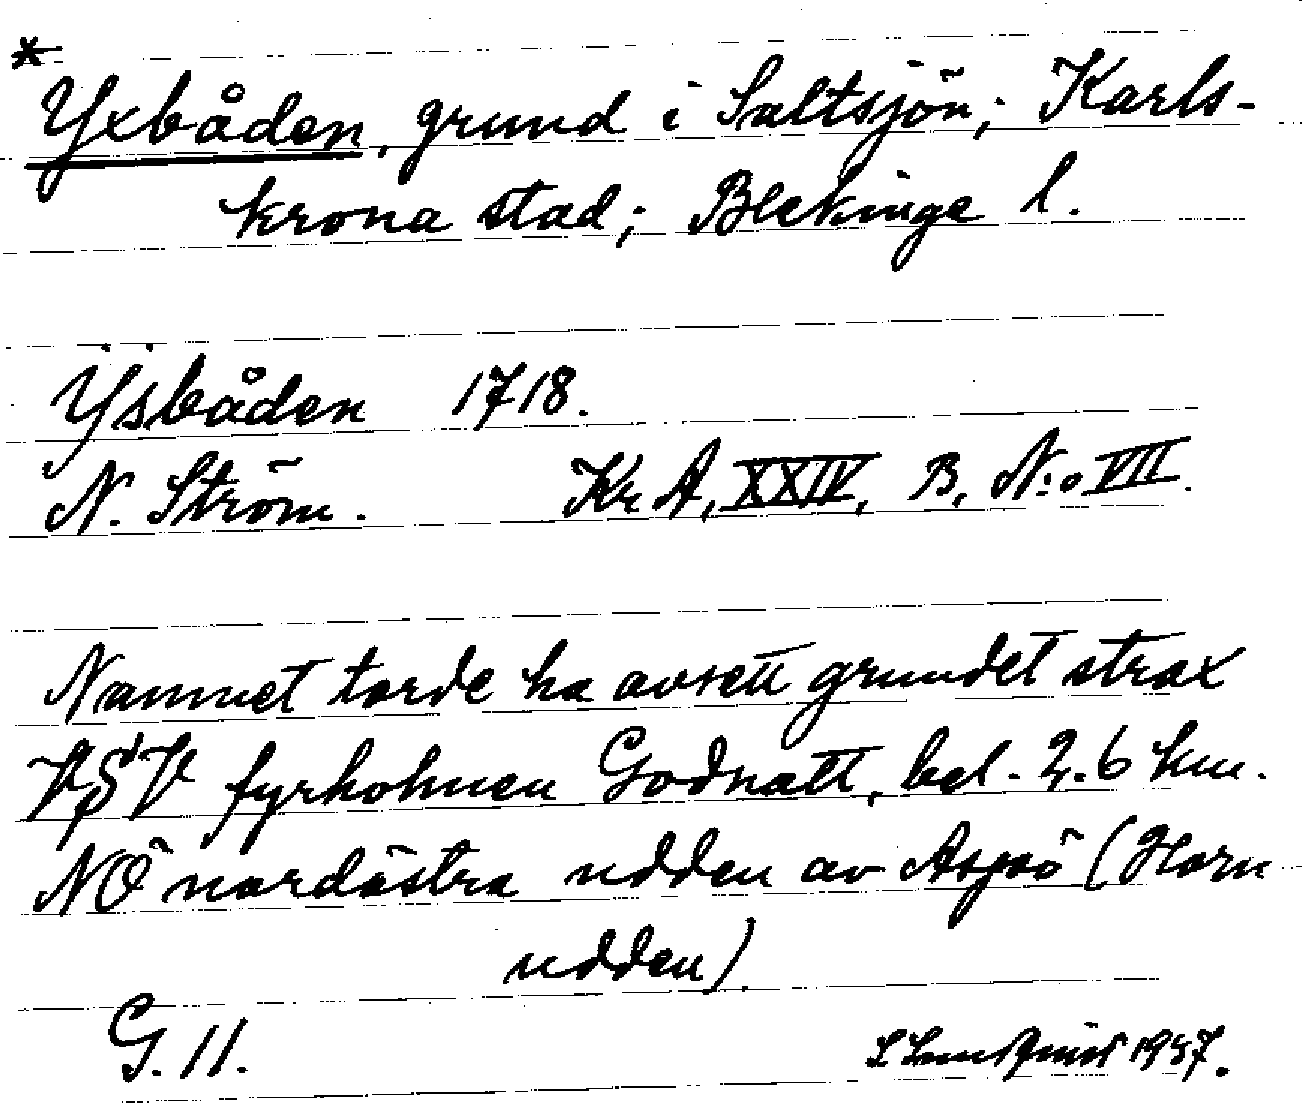 *
Yxbåden, grund i Saltsjön; Karls-
krona stad; Blekinge l.
Ÿsbåden 1718.
N. Ström. Kr A, XXIV, B, N:o VII.
Namnet torde ha avsett grundet strax
VSV fyrholmen Godnatt, bel. 2.6 km.
NÖ nordöstra udden av Aspö (Horn
udden).
G. 11.